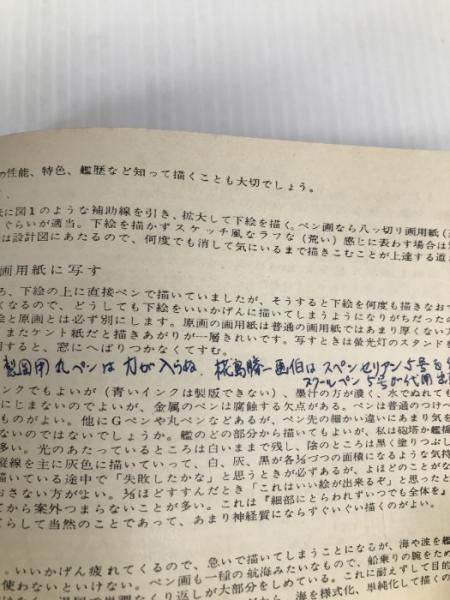 の性能、特色、艦歴など知って描くことも大切でしょう。
に図1のような補助線を引き、拡大して下絵を描く。ペン画なら八ッ切り画用紙
ぐらいが適当。下絵を描かずスケッチ風なラフな(荒い)感じに表わす場合は
は設計図にあたるので、何度でも消して気にいるまで描きこむことが上達する道
画用紙に写す
ろ、下絵の上に直接ペンで描いていましたが、そうすると下絵を何度も描きなお
くなるので、どうしても下絵をいいかげんに描いてしまうようになりがちだった
絵と原画とは必ず別にします。原画の画用紙は普通の画用紙ではあまり厚くない
またケント紙だと描きあがりが一層きれいです。写すときは螢光灯のスタンド
用すると、窓にへばりつかなくてすむ。
製図用丸ペンは力が入らぬ。梶島勝一画伯はスペンセリアン5号を
スクールペン5号が代用
ンクでもよいが(青いインクは製版できない)、墨汁の方が濃く、水でぬれても
にじまないのでよいが、金属のペンは腐触する欠点がある。ペンは普通のつけペ
ものがよい。他にGペンや丸ペンなどあるが、ペン先の細かい違いにあまり気を
ないのではないでしょうか。艦のどの部分から描いてもよいが、私は砲塔か艦橋
多い。光のあたっているところは白いままで残し、陰のところは黒く塗りつぶし
縦線を主に灰色に描いていって、白、灰、黒が各⅓づつの面積になるような気持
描いている途中で「失敗したかな」と思うときが必ずあるが、よほどのことがな
おさない方がよい。⅔ほどすすんだとき「これはいい絵が出来るぞ」と思ったと
てから案外つまらないことが多い。これは『細部にとらわれずいつでも全体を』
らして当然のことであって、あまり神経質にならずぐいぐい描くのがよい。
。いいかげん疲れてくるので、急いで描いてしまうことになるが、海や波を艦
使わないといけない。ペン画も一種の航海みたいなもので、船乗りの腕をため
くり返しが大部分をしめている。これに耐えずして目的
海を様式化、単純化して描くの